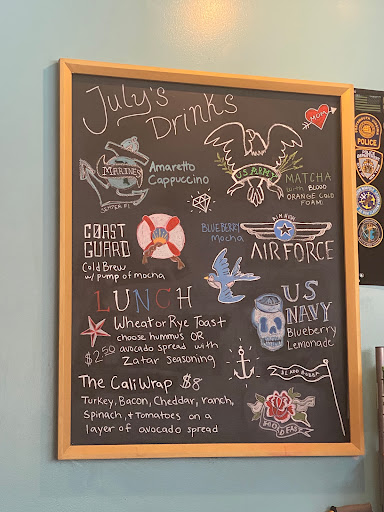 July's
Drinks
MOM
MARINES
SEMPER FI
Amaretto
Cappuccino
U.S. ARMY
MATCHA
with BLOOD
ORANGE COLD
FOAM
COAST
GUARD
Cold Brew
w/ pump of mocha
BLUEBERRY
Mocha
AIM HIGH
AIR FORCE
LUNCH
Wheat or Rye Toast
choose hummus OR
$2.50 avocado spread with
Zatar seasoning
US
NAVY
Blueberry
Lemonade
The Cali Wrap $8
Turkey, Bacon, Cheddar, ranch,
Spinach, + Tomatoes on a
layer of avocado spread
POLICE